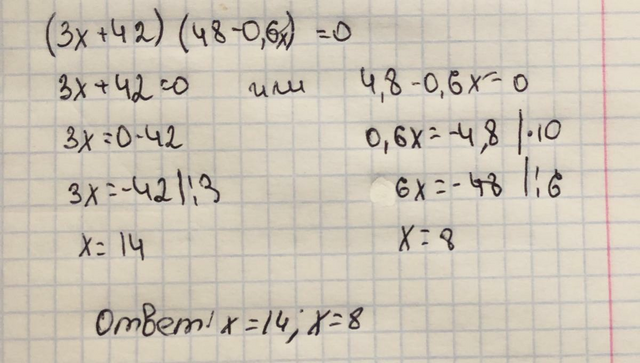 (3x+42) (48-0,6x) =0
3x+42=0 или 4,8-0,6x=0
3x=0-42 0,6x=-4,8 |·10
3x=-42|:3 6x=-48 |:6
x=14 x=8
Ответ: x=14; x=8